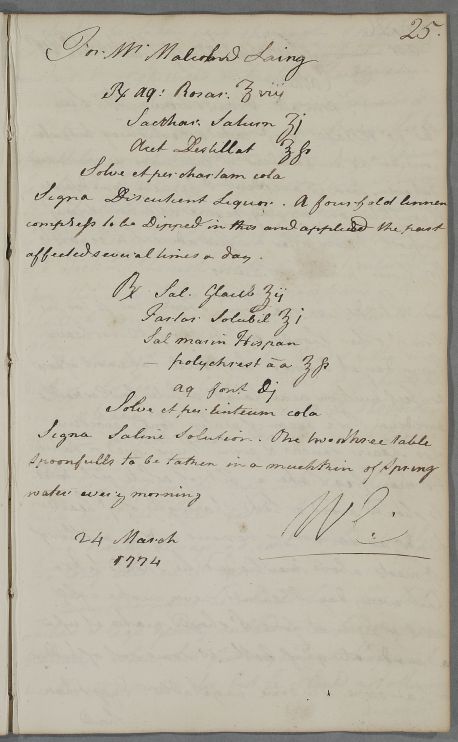 25.
For Mr Malcolm Laing
℞ Aq: Rosar. ℥ vij
Sacchar. Saturn ʒj
Acet Destillat ℥ß
Solve et per chartam cola
Signa Discutient Liquor. A four fold linnen
compress to be Dipped in this and applied the part
affected several times a day.
℞ Sal. Glaub ℥ij
Tartar Solubil ℥j
Sal marin Hispan
— polychrest āā ℥ß
aq font ℔j
Solve et per linteum cola
Signa Saline Solution. One two or three table
spoonfulls to be taken in a mutchkin of Spring
water every morning
24 March
1774